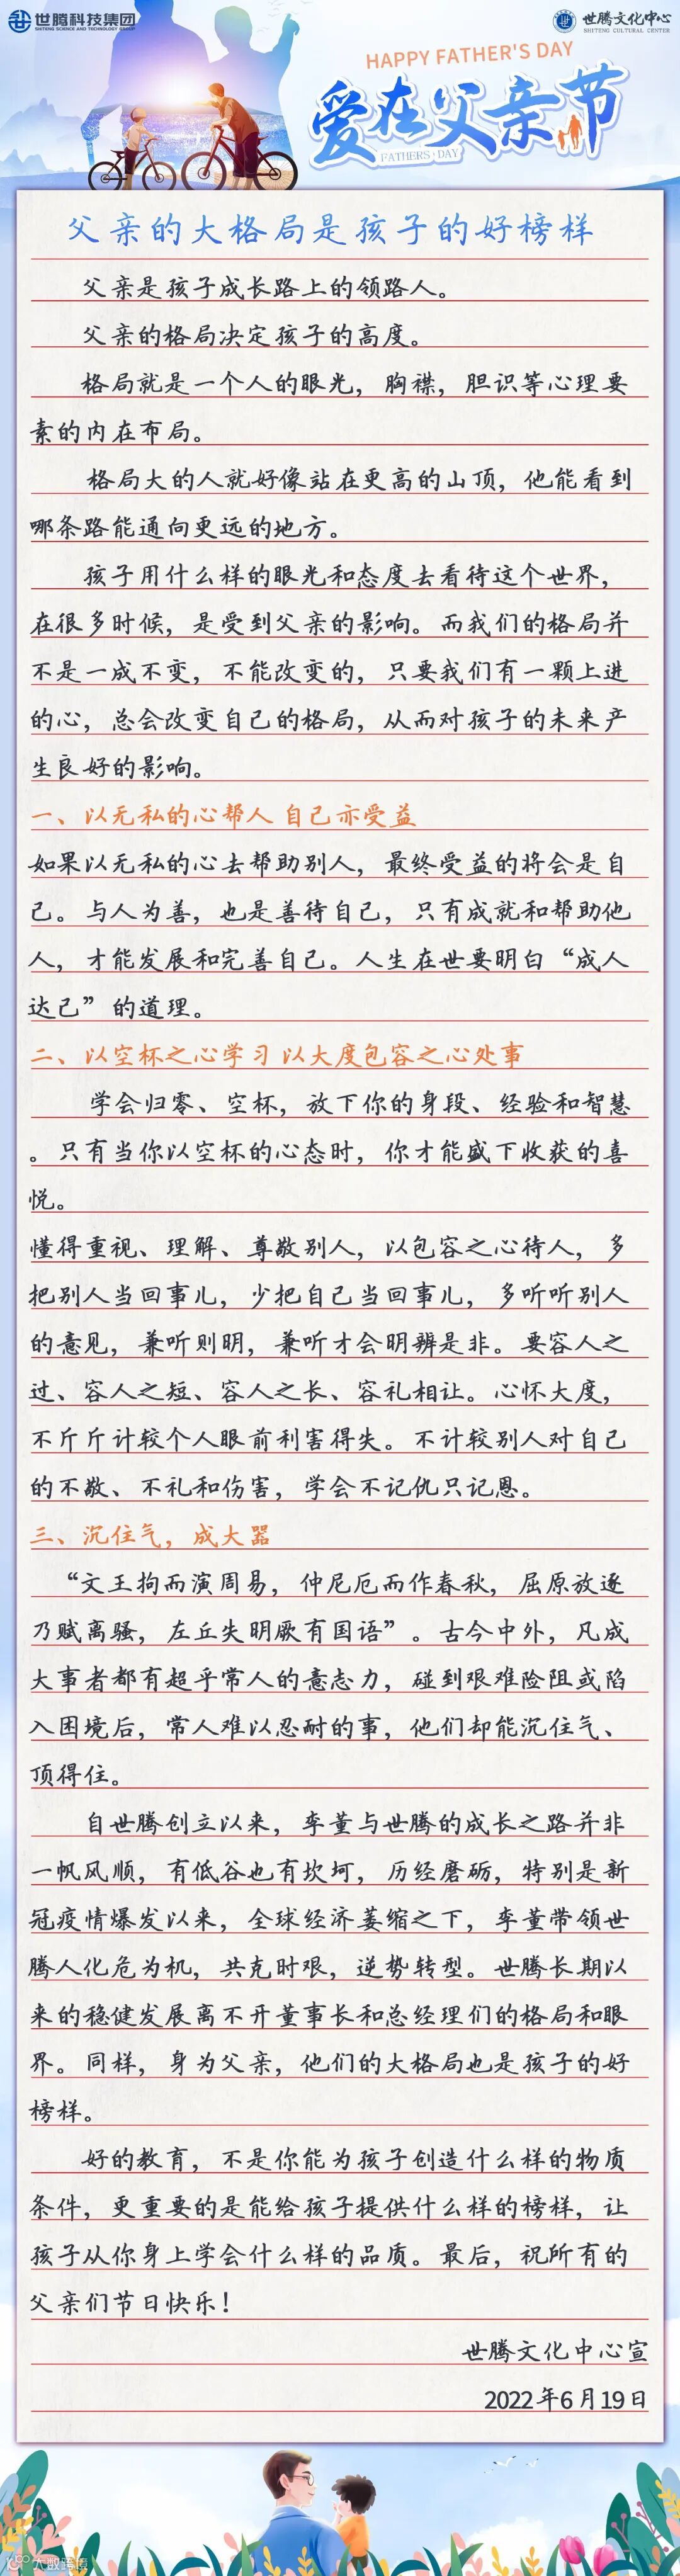 世腾科技集团
SHITENG SCIENCE AND TECHNOLOGY GROUP
世腾文化中心
SHITENG CULTURAL CENTER
HAPPY FATHER'S DAY
爱在父亲节
FATHERS·DAY
父亲的大格局是孩子的好榜样
父亲是孩子成长路上的领路人。
父亲的格局决定孩子的高度。
格局就是一个人的眼光，胸襟，胆识等心理要
素的内在布局。
格局大的人就好像站在更高的山顶，他能看到
哪条路能通向更远的地方。
孩子用什么样的眼光和态度去看待这个世界，
在很多时候，是受到父亲的影响。而我们的格局并
不是一成不变，不能改变的，只要我们有一颗上进
的心，总会改变自己的格局，从而对孩子的未来产
生良好的影响。
一、以无私的心帮人 自己亦受益
如果以无私的心去帮助别人，最终受益的将会是自
己。与人为善，也是善待自己，只有成就和帮助他
人，才能发展和完善自己。人生在世要明白“成人
达己”的道理。
二、以空杯之心学习 以大度包容之心处事
学会归零、空杯，放下你的身段、经验和智慧
。只有当你以空杯的心态时，你才能盛下收获的喜
悦。
懂得重视、理解、尊敬别人，以包容之心待人，多
把别人当回事儿，少把自己当回事儿，多听听别人
的意见，兼听则明，兼听才会明辨是非。要容人之
过、容人之短、容人之长、容礼相让。心怀大度，
不斤斤计较个人眼前利害得失。不计较别人对自己
的不敬、不礼和伤害，学会不记仇只记恩。
三、沉住气，成大器
“文王拘而演周易，仲尼厄而作春秋，屈原放逐
乃赋离骚，左丘失明厥有国语”。古今中外，凡成
大事者都有超乎常人的意志力，碰到艰难险阻或陷
入困境后，常人难以忍耐的事，他们却能沉住气、
顶得住。
自世腾创立以来，李董与世腾的成长之路并非
一帆风顺，有低谷也有坎坷，历经磨砺，特别是新
冠疫情爆发以来，全球经济萎缩之下，李董带领世
腾人化危为机，共克时艰，逆势转型。世腾长期以
来的稳健发展离不开董事长和总经理们的格局和眼
界。同样，身为父亲，他们的大格局也是孩子的好
榜样。
好的教育，不是你能为孩子创造什么样的物质
条件，更重要的是能给孩子提供什么样的榜样，让
孩子从你身上学会什么样的品质。最后，祝所有的
父亲们节日快乐！
世腾文化中心宣
2022年6月19日
大数跨境